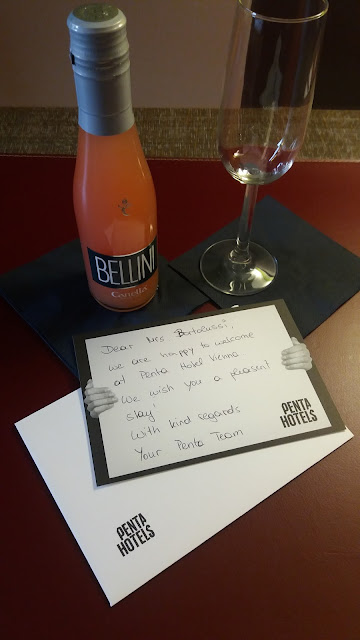 BELLINI
Canella
Dear Mrs Bortolussi,
we are happy to welcome
at Penta Hotel Vienna
We wish you a pleasent
stay!
With kind regards
Your Penta Team
PENTA
HOTELS
PENTA
HOTELS